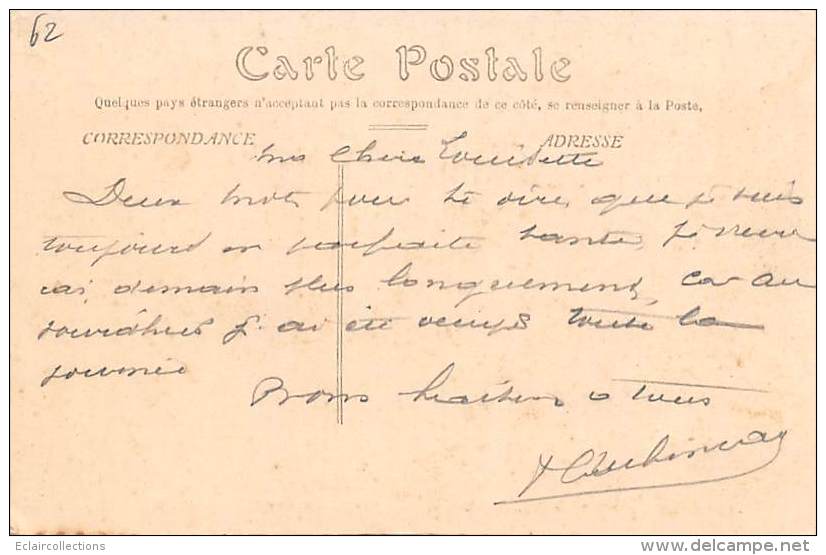 62
Carte Postale
Quelques pays étrangers n'acceptant pas la correspondance de ce côté, se renseigner à la Poste.
CORRESPONDANCE ADRESSE
Ma Chère Louisette
Deux mots pour te dire que je suis
toujours en parfaite santé, je
rai demain plus longuement, car au
j'ai été toute la
journée
Bons baisers a tous
Eclaircollections
delcampe.net